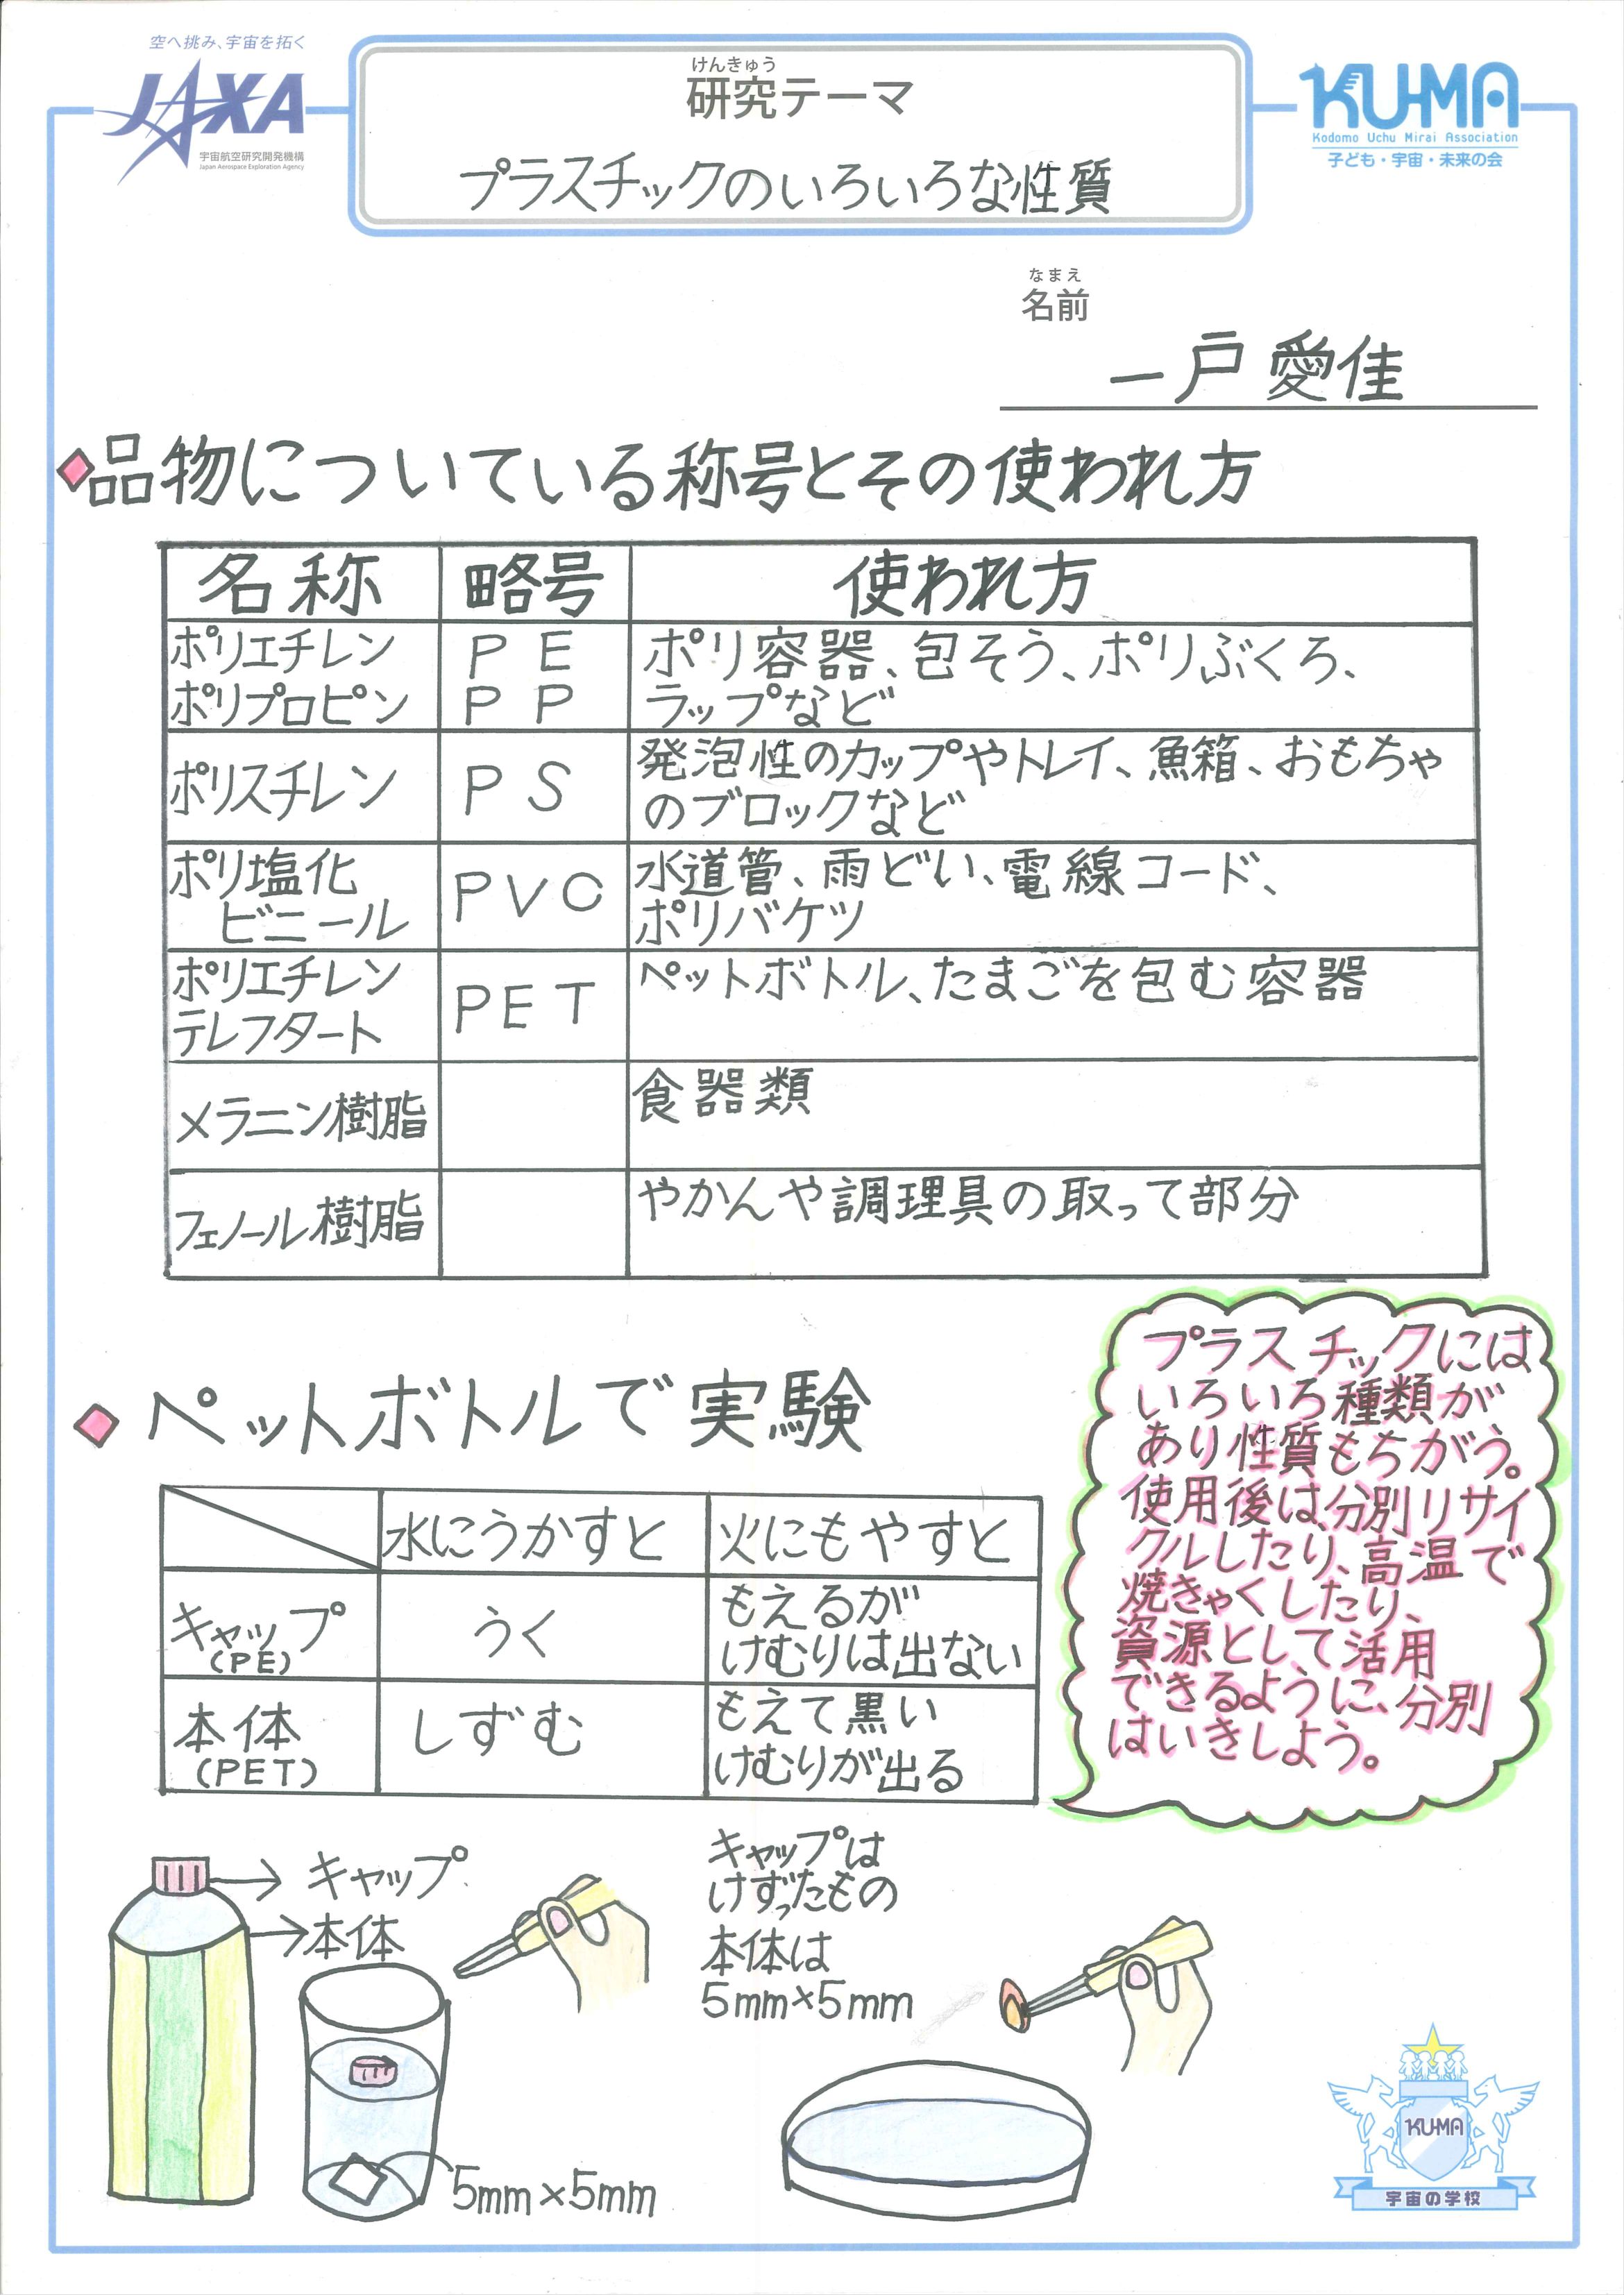 空へ挑み、宇宙を拓く
JAXA
宇宙航空研究開発機構
Japan Aerospace Exploration Agency
けんきゅう
研究テーマ
プラスチックのいろいろな性質
KUMA
Kodomo Uchu Mirai Association
子ども・宇宙・未来の会
なまえ
名前
一戸 愛佳
品物についている称号とその使われ方
名称 略号 使われ方
ポリエチレン PE ポリ容器、包そう、ポリぶくろ、
ポリプロピン PP ラップなど
ポリスチレン PS 発泡性のカップやトレイ、魚箱、おもちゃ
のブロックなど
ポリ塩化 PVC 水道管、雨どい、電線コード、
ビニール ポリバケツ
ポリエチレン PET ペットボトル、たまごを包む容器
テレフタート
メラニン樹脂 食器類
フェノール樹脂 やかんや調理具の取って部分
ペットボトルで実験
水にうかすと 火にもやすと
キャップ うく もえるが
(PE) けむりは出ない
本体 しずむ もえて黒い
(PET) けむりが出る
プラスチックには
いろいろ種類が
あり性質もちがう。
使用後は、分別リサイ
クルしたり、高温で
焼きゃくしたり、
資源として活用
できるように、分別
はいきしよう。
キャップ
本体
キャップは
けずったもの
本体は
5mm×5mm
5mm×5mm
KUMA
宇宙の学校